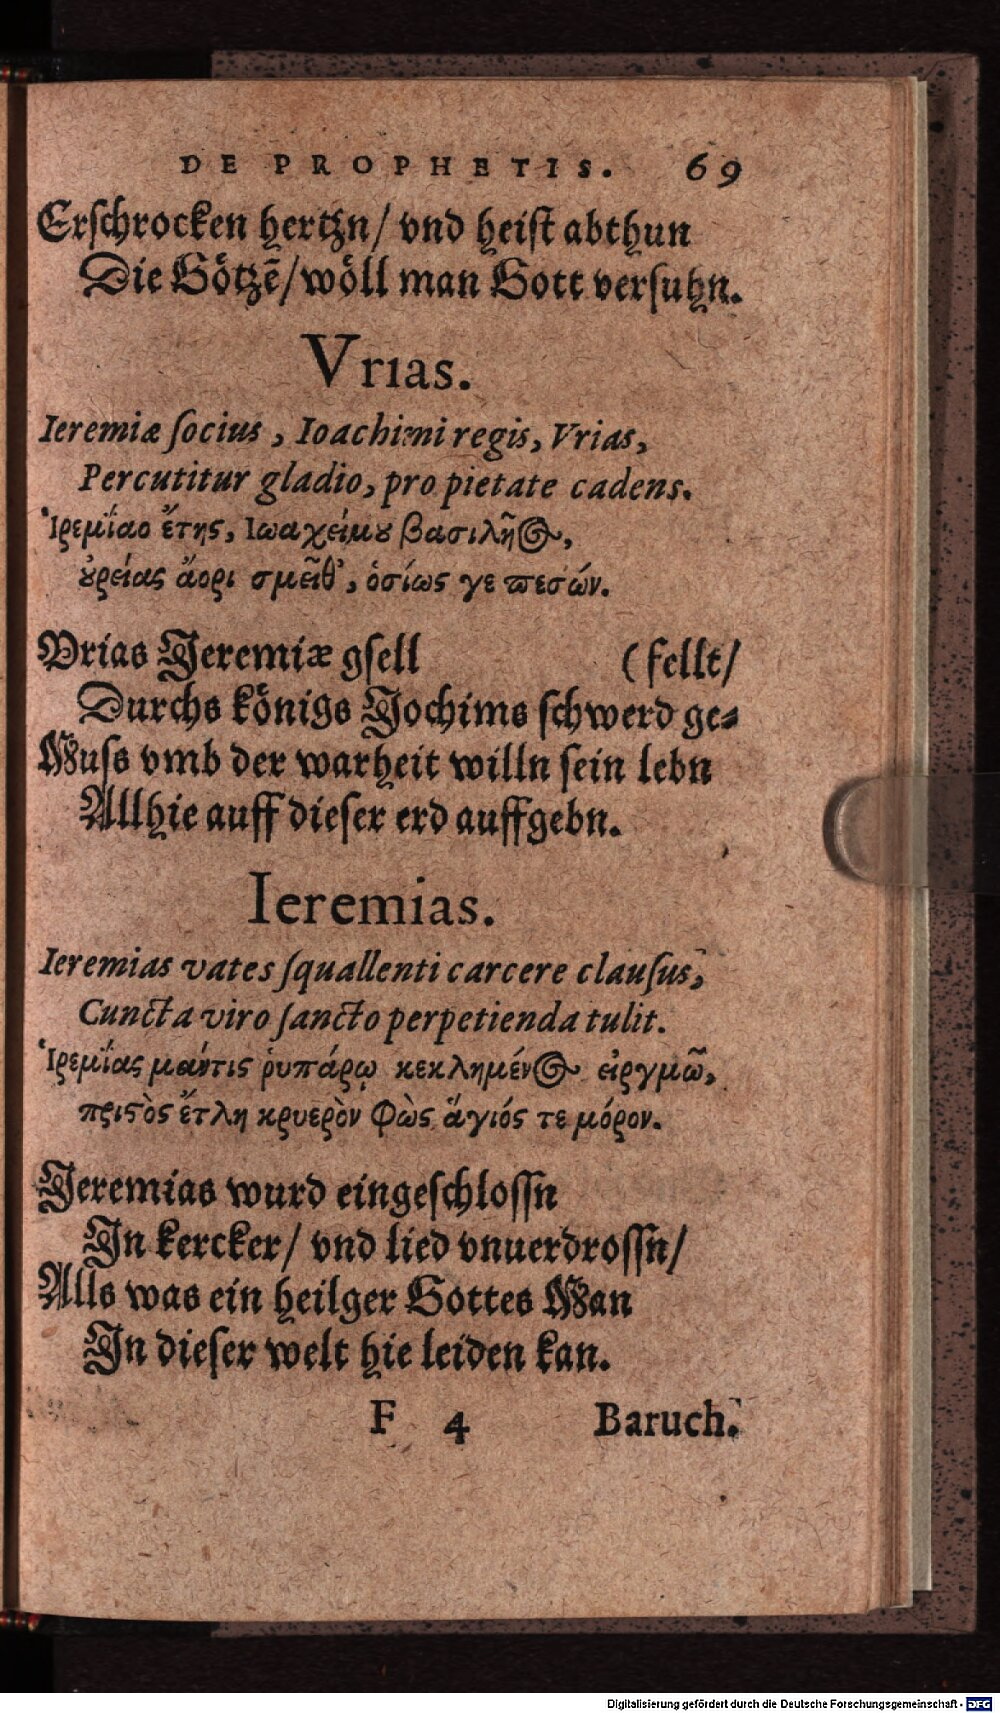 DE PROPHETIS. 69
Erschrocken hertzn/ vnd heist abthun
Die Götzē/ wöll man Gott versuhn.
Vrias.
Ieremiæ ſocius, Ioachimi regis, Vrias,
Percutitur gladio, pro pietate cadens.
Ἰρεμΐαο ἔτης, Ιωαχείμου βασιλῆος,
ουρείας ἄορι σμεῖθ', ὁσίως γε πεσών.
Vrias Jeremiæ gſell (fellt/
Durchs königs Jochims ſchwerd ge-
Muſs vmb der warheit willn ſein lebn
Allhie auff dieſer erd auffgebn.
Ieremias.
Ieremias vates ſquallenti carcere clauſus,
Cuncta viro ſancto perpetienda tulit.
Ἰρεμΐας μάντις ῥυπάρῳ κεκλημένος εἱργμῶ,
πριστὸς ἔτλη κρυερὸν φὼς ἅγιός τε μόρον.
Jeremias wurd eingeſchloſſn
In kercker/ vnd lied vnuerdroſſn/
Alls was ein heilger Gottes Man
In dieſer welt hie leiden kan.
F 4 Baruch.
Digitalisierung gefördert durch die Deutsche Forschungsgemeinschaft - DFG